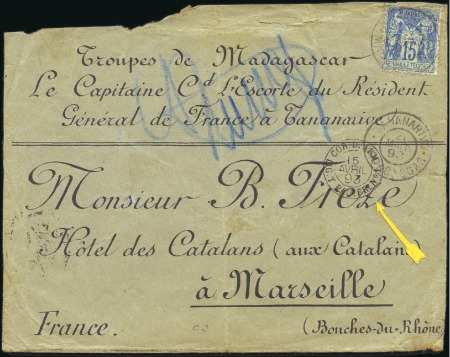 Troupes de Madagascar
Le Capitaine Cᵈ L'Escorte du Résident
Général de France à Tananarive
15
15
AVRIL
93
Monsieur B. Freze
Hôtel des Catalans (aux Catalans)
à Marseille
France.
(Bouches-du-Rhône)